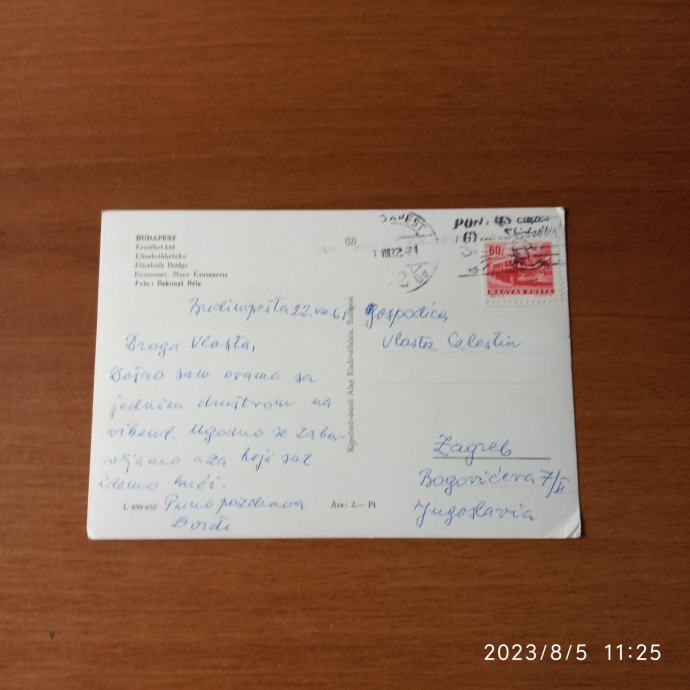 BUDAPEST
Erzsébet-híd
Elisabethbrücke
Elisabeth Bridge
Будапешт, Мост Елизаветы
Foto: Bakonyi Béla
Budimpešta 22.VIII.61.
Draga Vlasta,
Došao sam ovamo sa
jednim društvom na
vikend. Ugodno se zaba-
vljamo a za koji sat
idemo kući.
Puno pozdrava
Đorđe
L 699.652
Ára: 2,— Ft
Képzőművészeti Alap Kiadóvállalata, Budapest
60
MAGYAR POSTA
Gospođica
Vlasta Celestin
Zagreb
Bogovićeva 7/II
Jugoslavia
2023/8/5 11:25